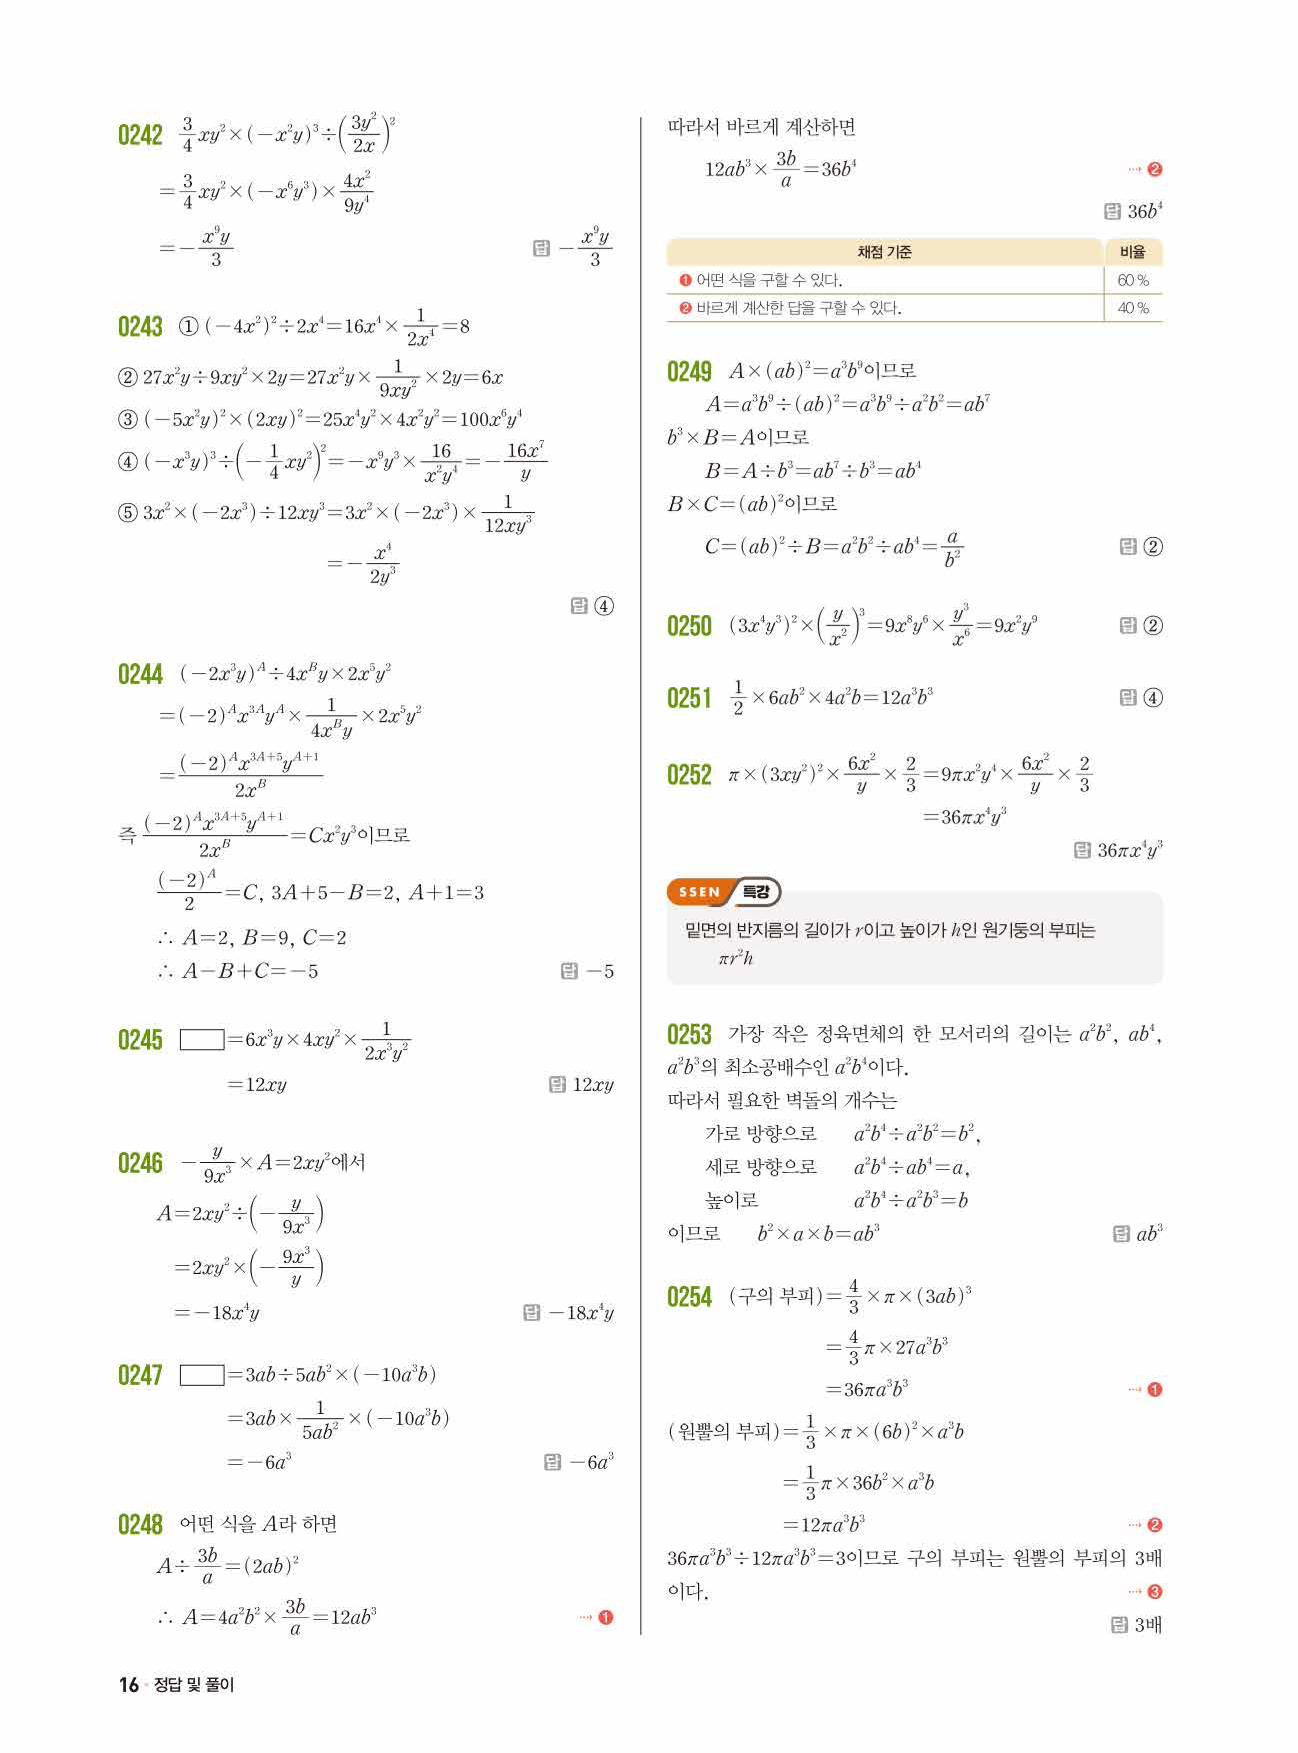 0242 $\frac{3}{4}xy^2\times(-x^2y)^3\div\left(\frac{3y^2}{2x}\right)^2$
$=\frac{3}{4}xy^2\times(-x^6y^3)\times\frac{4x^2}{9y^4}$
$=-\frac{x^9y}{3}$ 답 $-\frac{x^9y}{3}$
0243 ① $(-4x^2)^2\div2x^4=16x^4\times\frac{1}{2x^4}=8$
② $27x^2y\div9xy^2\times2y=27x^2y\times\frac{1}{9xy^2}\times2y=6x$
③ $(-5x^2y)^2\times(2xy)^2=25x^4y^2\times4x^2y^2=100x^6y^4$
④ $(-x^3y)^3\div\left(-\frac{1}{4}xy^2\right)^2=-x^9y^3\times\frac{16}{x^2y^4}=-\frac{16x^7}{y}$
⑤ $3x^2\times(-2x^3)\div12xy^3=3x^2\times(-2x^3)\times\frac{1}{12xy^3}$
$=-\frac{x^4}{2y^3}$
답 ④
0244 $(-2x^3y)^A\div4x^By\times2x^5y^2$
$=(-2)^Ax^{3A}y^A\times\frac{1}{4x^By}\times2x^5y^2$
$=\frac{(-2)^Ax^{3A+5}y^{A+1}}{2x^B}$
즉 $\frac{(-2)^Ax^{3A+5}y^{A+1}}{2x^B}=Cx^2y^3$이므로
$\frac{(-2)^A}{2}=C,\ 3A+5-B=2,\ A+1=3$
∴ $A=2,\ B=9,\ C=2$
∴ $A-B+C=-5$ 답 $-5$
0245 □$=6x^3y\times4xy^2\times\frac{1}{2x^3y^2}$
$=12xy$ 답 $12xy$
0246 $-\frac{y}{9x^3}\times A=2xy^2$에서
$A=2xy^2\div\left(-\frac{y}{9x^3}\right)$
$=2xy^2\times\left(-\frac{9x^3}{y}\right)$
$=-18x^4y$ 답 $-18x^4y$
0247 □$=3ab\div5ab^2\times(-10a^3b)$
$=3ab\times\frac{1}{5ab^2}\times(-10a^3b)$
$=-6a^3$ 답 $-6a^3$
0248 어떤 식을 $A$라 하면
$A\div\frac{3b}{a}=(2ab)^2$
∴ $A=4a^2b^2\times\frac{3b}{a}=12ab^3$ ⋯→ ❶
따라서 바르게 계산하면
$12ab^3\times\frac{3b}{a}=36b^4$ ⋯→ ❷
답 $36b^4$
채점 기준 비율
❶ 어떤 식을 구할 수 있다. 60 %
❷ 바르게 계산한 답을 구할 수 있다. 40 %
0249 $A\times(ab)^2=a^3b^9$이므로
$A=a^3b^9\div(ab)^2=a^3b^9\div a^2b^2=ab^7$
$b^3\times B=A$이므로
$B=A\div b^3=ab^7\div b^3=ab^4$
$B\times C=(ab)^2$이므로
$C=(ab)^2\div B=a^2b^2\div ab^4=\frac{a}{b^2}$ 답 ②
0250 $(3x^4y^3)^2\times\left(\frac{y}{x^2}\right)^3=9x^8y^6\times\frac{y^3}{x^6}=9x^2y^9$ 답 ②
0251 $\frac{1}{2}\times6ab^2\times4a^2b=12a^3b^3$ 답 ④
0252 $\pi\times(3xy^2)^2\times\frac{6x^2}{y}\times\frac{2}{3}=9\pi x^2y^4\times\frac{6x^2}{y}\times\frac{2}{3}$
$=36\pi x^4y^3$
답 $36\pi x^4y^3$
SSEN 특강
밑면의 반지름의 길이가 $r$이고 높이가 $h$인 원기둥의 부피는
$\pi r^2h$
0253 가장 작은 정육면체의 한 모서리의 길이는 $a^2b^2,\ ab^4,$
$a^2b^3$의 최소공배수인 $a^2b^4$이다.
따라서 필요한 벽돌의 개수는
가로 방향으로 $a^2b^4\div a^2b^2=b^2,$
세로 방향으로 $a^2b^4\div ab^4=a,$
높이로 $a^2b^4\div a^2b^3=b$
이므로 $b^2\times a\times b=ab^3$ 답 $ab^3$
0254 (구의 부피)$=\frac{4}{3}\times\pi\times(3ab)^3$
$=\frac{4}{3}\pi\times27a^3b^3$
$=36\pi a^3b^3$ ⋯→ ❶
(원뿔의 부피)$=\frac{1}{3}\times\pi\times(6b)^2\times a^3b$
$=\frac{1}{3}\pi\times36b^2\times a^3b$
$=12\pi a^3b^3$ ⋯→ ❷
$36\pi a^3b^3\div12\pi a^3b^3=3$이므로 구의 부피는 원뿔의 부피의 3배
이다. ⋯→ ❸
답 3배
16 • 정답 및 풀이